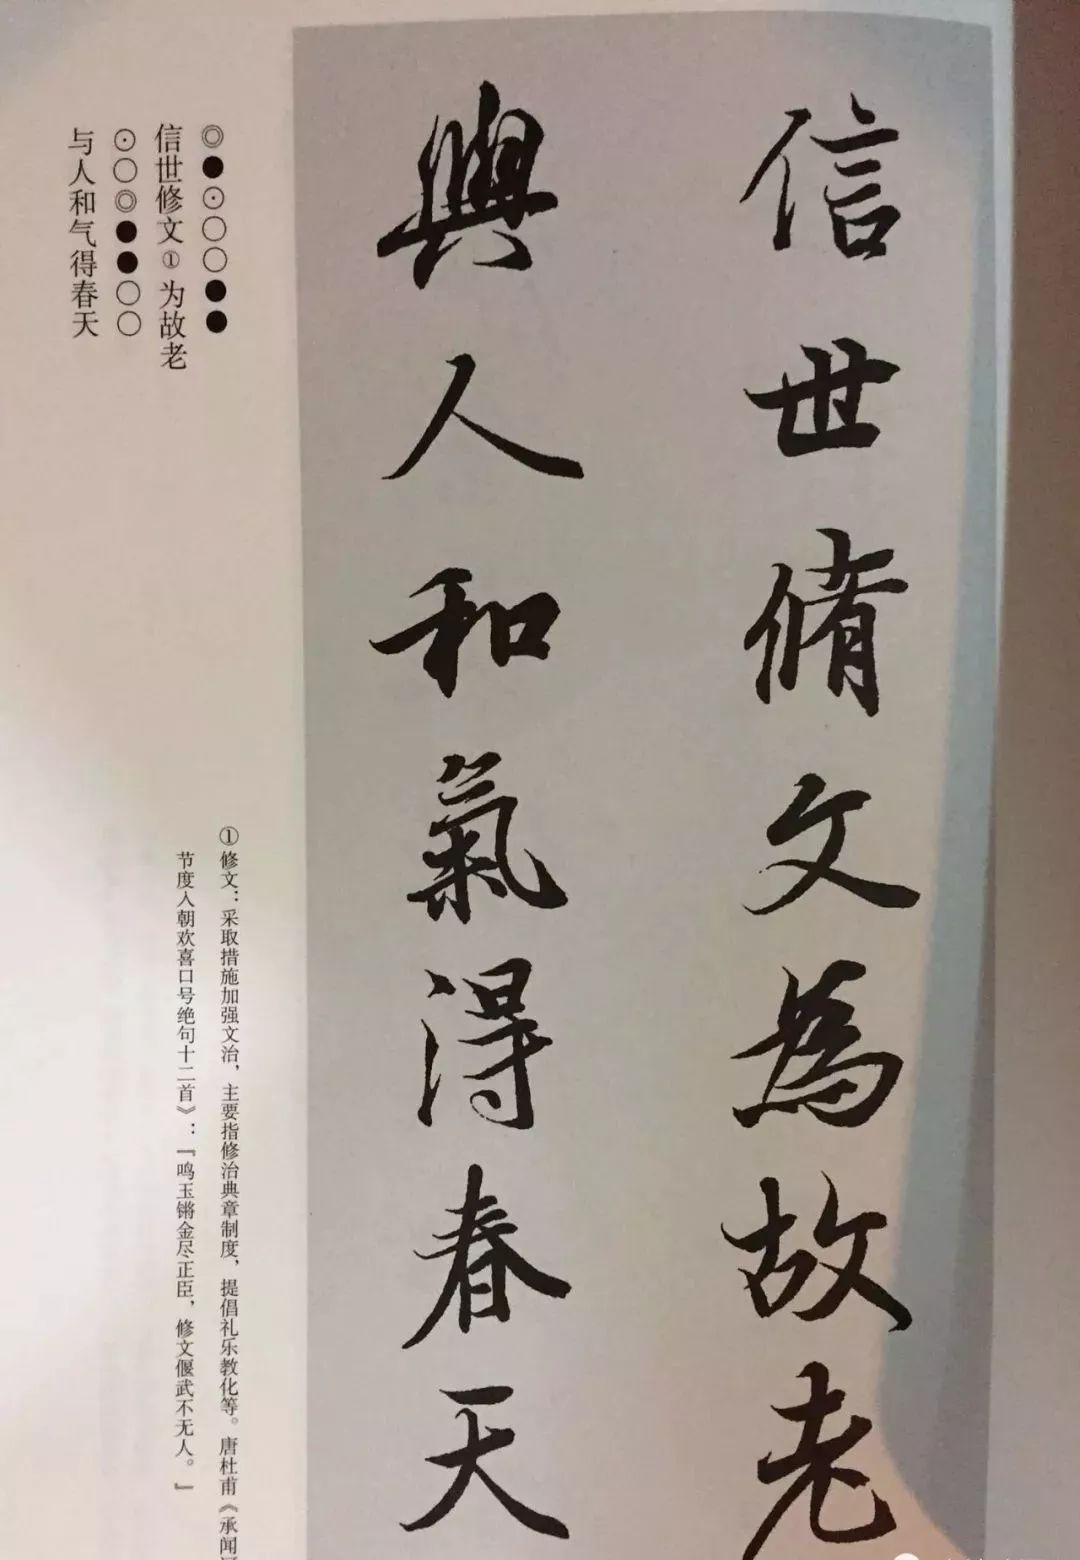 信世脩文為故老
與人和氣得春天
◎●⊙○○●●
信世修文①为故老
⊙○◎●●○○
与人和气得春天
①修文：采取措施加强文治，主要指修治典章制度，提倡礼乐教化等。唐杜甫《承闻
节度入朝欢喜口号绝句十二首》：『鸣玉锵金尽正臣，修文偃武不无人。』